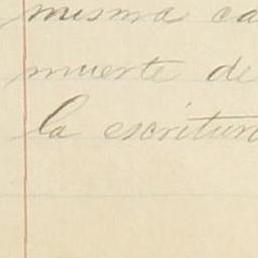 misma ca
muerte de
la escritur